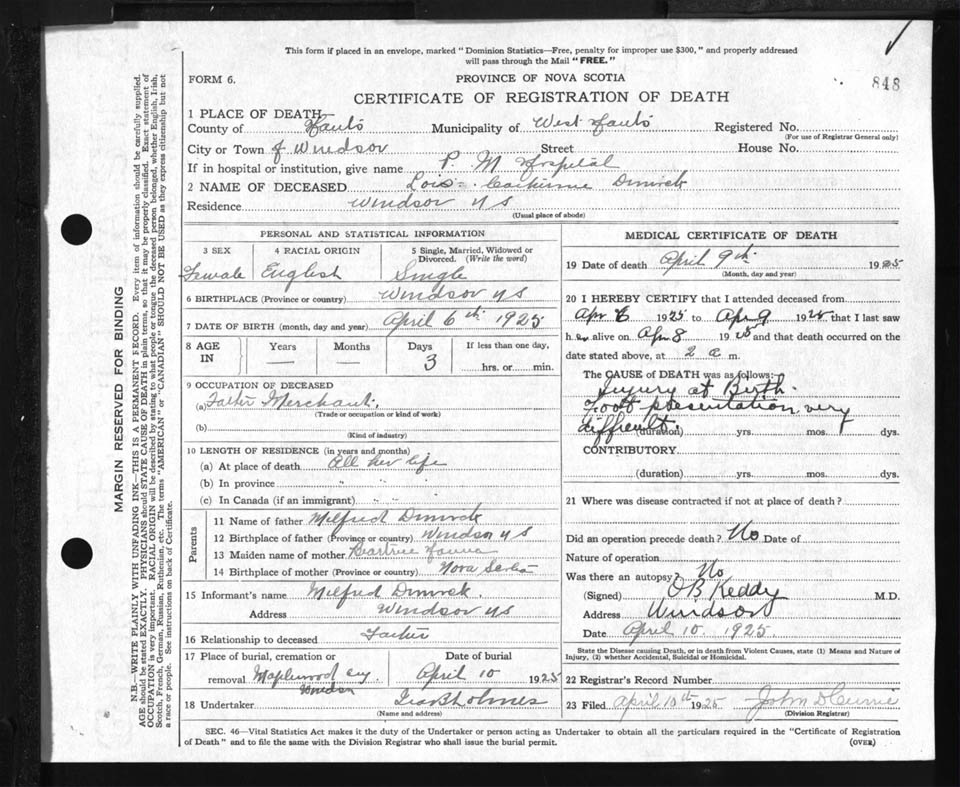 This form if placed in an envelope, marked "Dominion Statistics—Free, penalty for improper use $300," and properly addressed
will pass through the Mail "FREE."
FORM 6.
PROVINCE OF NOVA SCOTIA
848
CERTIFICATE OF REGISTRATION OF DEATH
1 PLACE OF DEATH
County of Hants Municipality of West Hants Registered No.
(For use of Registrar General only)
City or Town of Windsor Street House No.
If in hospital or institution, give name P. M Hospital
2 NAME OF DECEASED Lois Catherine Dimock
Residence Windsor NS
(Usual place of abode)
PERSONAL AND STATISTICAL INFORMATION
3 SEX 4 RACIAL ORIGIN 5 Single, Married, Widowed or
Divorced. (Write the word)
Female English Single
6 BIRTHPLACE (Province or country) Windsor NS
7 DATE OF BIRTH (month, day and year) April 6th 1925
8 AGE IN Years Months Days If less than one day,
3 hrs. or min.
9 OCCUPATION OF DECEASED
(a) Father Merchant
(Trade or occupation or kind of work)
(b)
(Kind of industry)
10 LENGTH OF RESIDENCE (in years and months)
(a) At place of death All her life
(b) In province " " "
(c) In Canada (if an immigrant) " " "
Parents
11 Name of father Milfred Dimock
12 Birthplace of father (Province or country) Windsor NS
13 Maiden name of mother Beatrice
14 Birthplace of mother (Province or country) Nova Scotia
15 Informant's name Milfred Dimock
Address Windsor NS
16 Relationship to deceased Father
17 Place of burial, cremation or Date of burial
removal Maplewood Cey April 10 1925
Windsor
18 Undertaker Holmes
(Name and address)
MEDICAL CERTIFICATE OF DEATH
19 Date of death April 9th 1925
(Month, day and year)
20 I HEREBY CERTIFY that I attended deceased from
Apr 6 1925 to Apr 9 1925 that I last saw
her alive on Apr 8 1925 and that death occurred on the
date stated above, at 2 a m.
The CAUSE of DEATH was as follows:
Injury at Birth.
Foot presentation very
difficult
(duration) yrs. mos. dys.
CONTRIBUTORY
(duration) yrs. mos. dys.
21 Where was disease contracted if not at place of death?
Did an operation precede death? No Date of
Nature of operation
Was there an autopsy? No
(Signed) OB Keddy M.D.
Address Windsor
Date April 10. 1925.
State the Disease causing Death, or in death from Violent Causes, state (1) Means and Nature of
Injury, (2) whether Accidental, Suicidal or Homicidal.
22 Registrar's Record Number
23 Filed April 10th 1925 John D Currie
(Division Registrar)
SEC. 46—Vital Statistics Act makes it the duty of the Undertaker or person acting as Undertaker to obtain all the particulars required in the "Certificate of Registration
of Death" and to file the same with the Division Registrar who shall issue the burial permit.
(OVER)
MARGIN RESERVED FOR BINDING
N.B.—WRITE PLAINLY WITH UNFADING INK—THIS IS A PERMANENT RECORD. Every item of information should be carefully supplied.
AGE should be stated EXACTLY. PHYSICIANS should STATE CAUSE OF DEATH in plain terms, so that it may be properly classified. Exact statement of
OCCUPATION is very important. RACIAL ORIGIN will be described by stating to what people or tongue the deceased person belonged, whether English, Irish,
Scotch, French, German, Russian, Ruthenian, etc. The terms "AMERICAN" or "CANADIAN" SHOULD NOT BE USED as they express citizenship but not
a race or people. See instructions on back of Certificate.